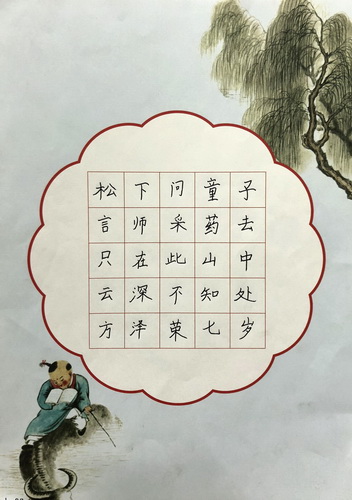 松下问童子
言师采药去
只在此山中
云深不知处
方泽荣七岁